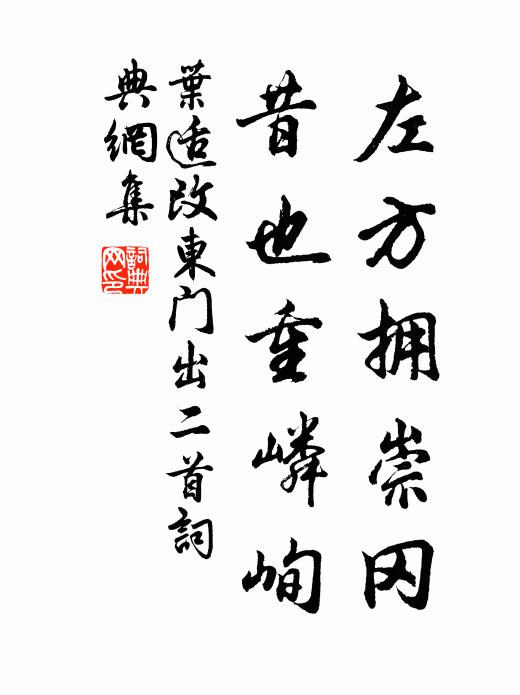 左方拥崇冈
昔也重嶙峋
葉适改東门出二首詞
典網集
詞典网印